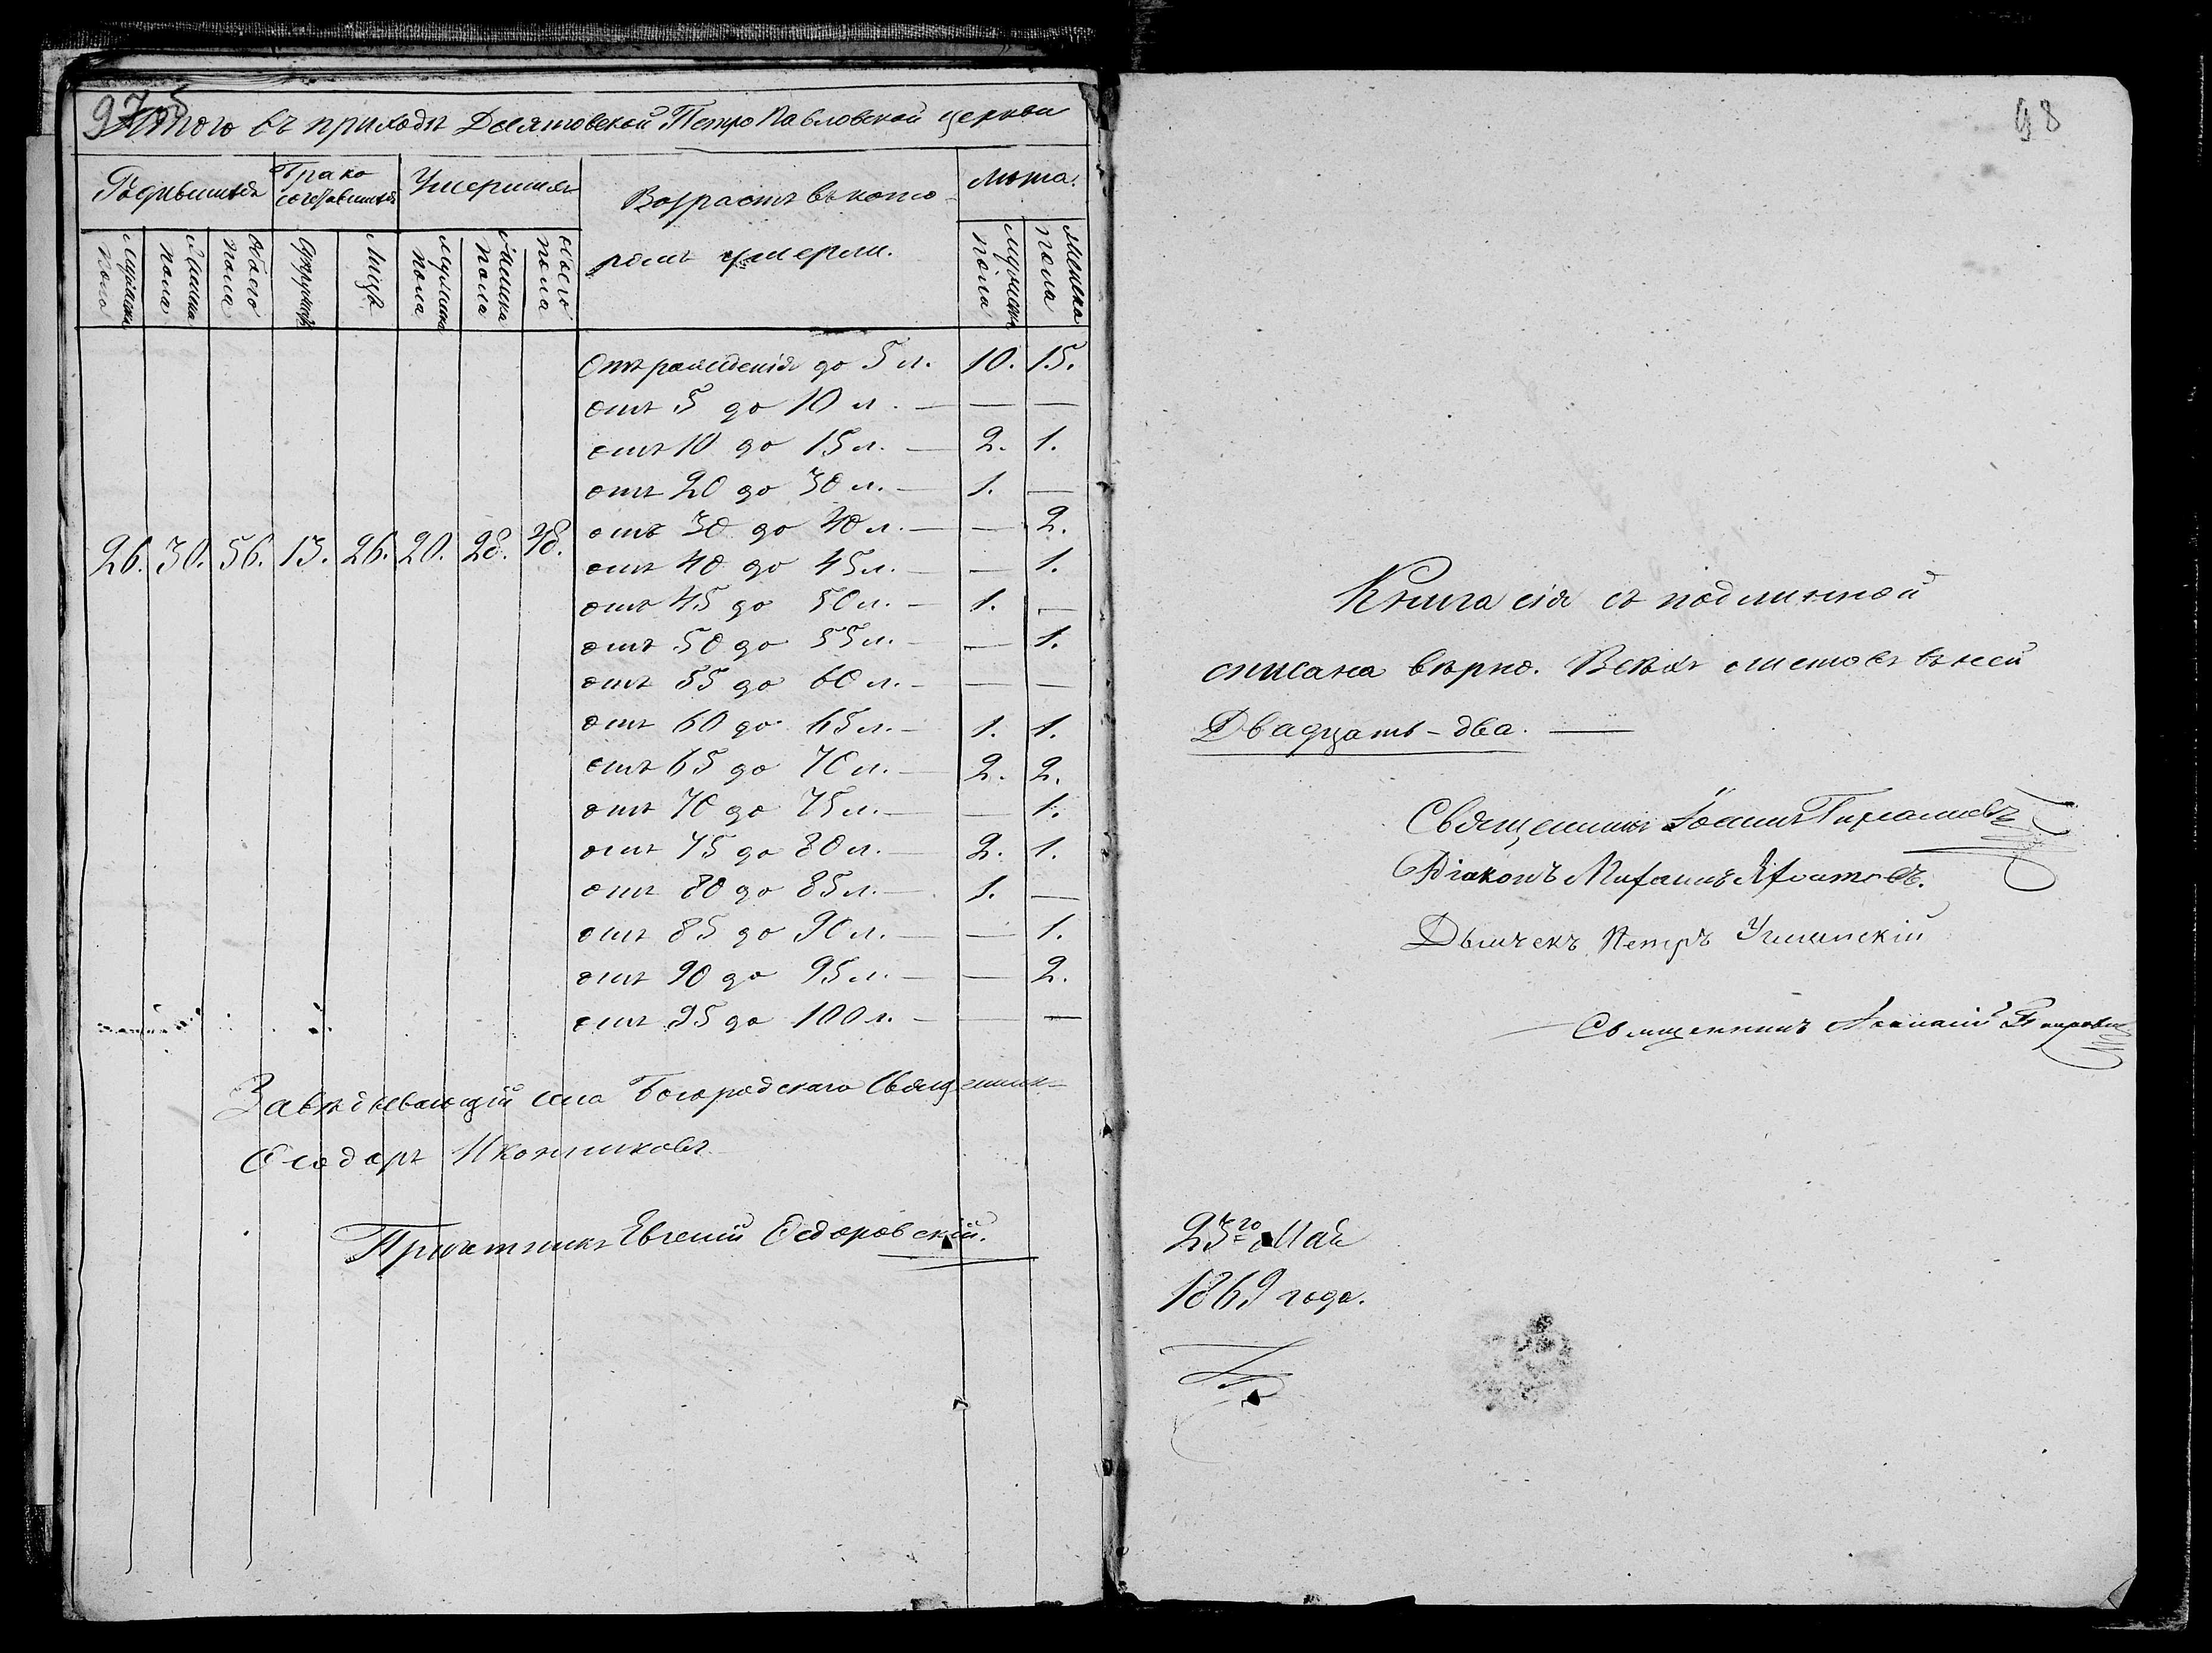 97об
Итого въ приходѣ Десятовской Петро Павловской церкви
Родившихся
Брако сочетавшихся
Умершихъ
Возрастъ въ кото
ромъ умерли.
Лѣта.
Мужеска пола
Женска пола
Обоего пола
Супружествъ
Лицъ
Мужеска пола
Женска пола
Обоего пола
Мужеска пола
Женска пола
Отъ рожденія до 5 л. 10. 15.
отъ 5 до 10 л. — — —
отъ 10 до 15 л. — 2. 1.
отъ 20 до 30 л. — 1. —
отъ 30 до 40 л. — — 2.
26. 30. 56. 13. 26. 20. 28. 48.
отъ 40 до 45 л. — — 1.
отъ 45 до 50 л. — 1. —
отъ 50 до 55 л. — — 1.
отъ 55 до 60 л. — — —
отъ 60 до 65 л. — 1. 1.
отъ 65 до 70 л. — 2. 2.
отъ 70 до 75 л. — — 1.
отъ 75 до 80 л. — 2. 1.
отъ 80 до 85 л. — 1. —
отъ 85 до 90 л. — — 1.
отъ 90 до 95 л. — — 2.
отъ 95 до 100 л. — — —
Завѣдывающій села Богородскаго Священник
Ѳеодоръ Иконниковъ
Причетникъ Евгений Ѳедоровскій.
98
Книга сія съ подлинной
списана вѣрно. Всѣхъ листовъ въ ней
Двадцать-два. —
Священникъ Іоаннъ
Діаконъ Михаилъ
Дьячекъ Петръ Ушминскій
Священникъ
23го Мая
1869 года.